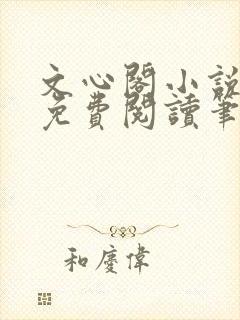 文心閣小說
免費閱讀筆
和慶偉